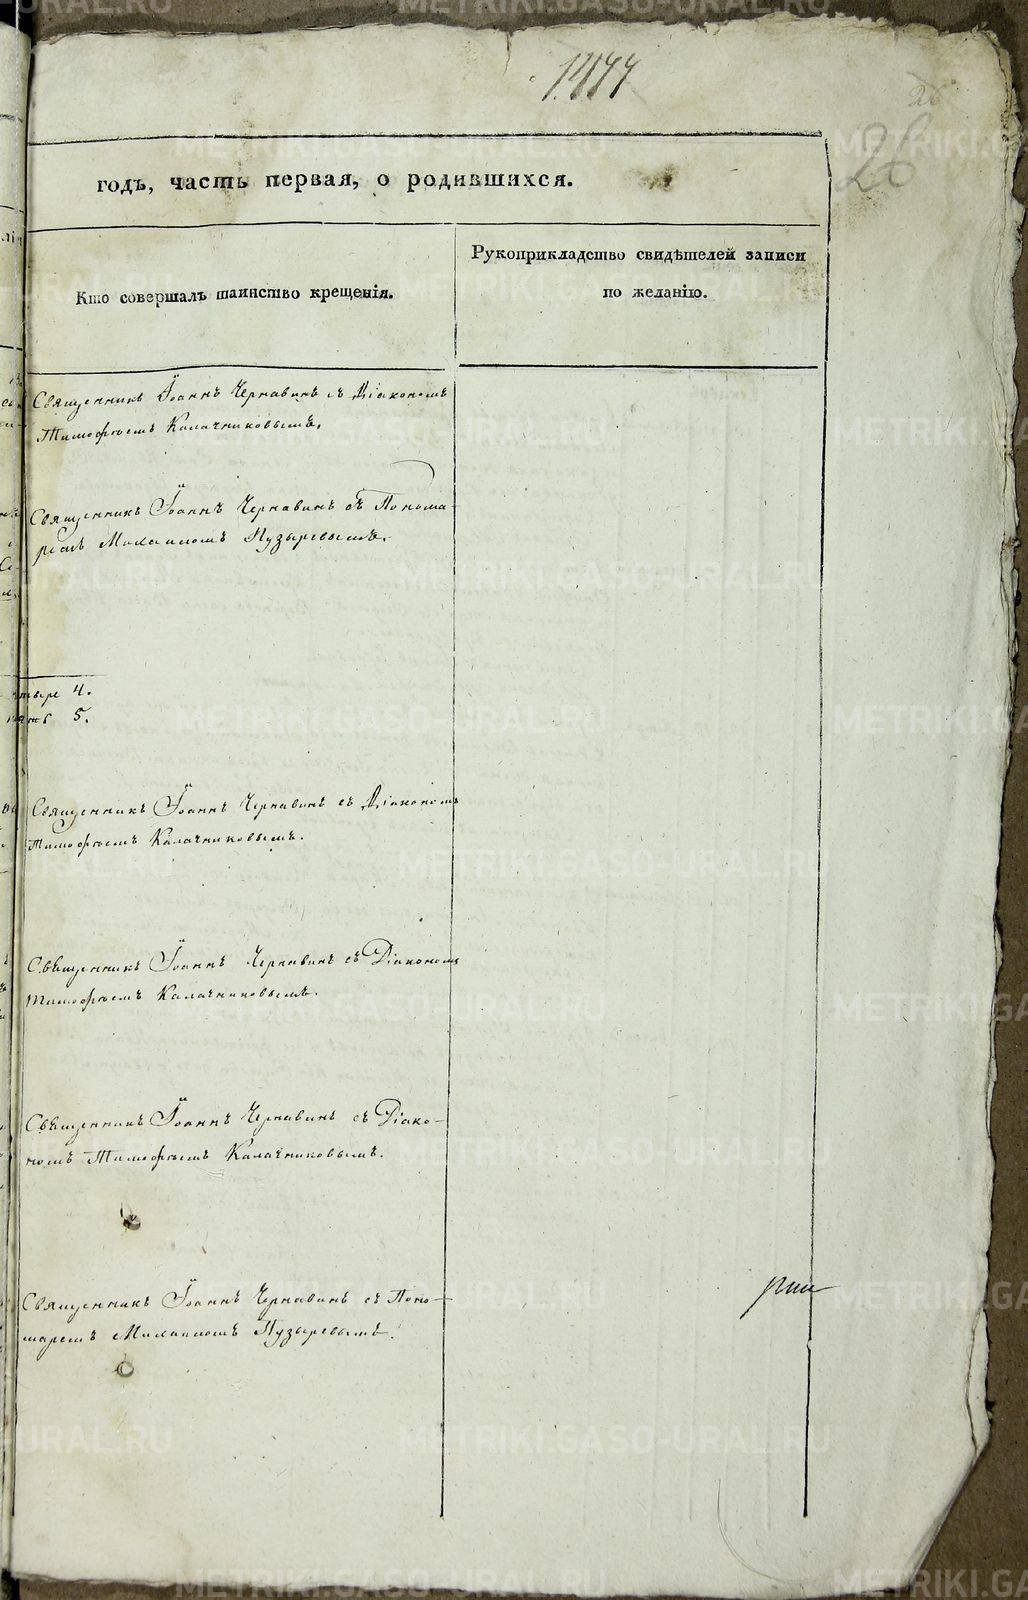 1477
26
26
годъ, часть первая, о родившихся.
Кто совершалъ таинство крещенія.
Рукоприкладство свидѣтелей записи
по желанію.
Священникъ Іоаннъ Чернавинъ съ Діакономъ
Тимофѣемъ Калачниковымъ.
Священникъ Іоаннъ Чернавинъ съ Понома-
ремъ Маланиомъ Пузыревымъ.
4.
5.
Священникъ Іоаннъ Чернавинъ съ Діакономъ
Тимофѣемъ Калачниковымъ.
Священникъ Іоаннъ Чернавинъ съ Діакономъ
Тимофѣемъ Калачниковымъ.
Священникъ Іоаннъ Чернавинъ съ Діако-
номъ Тимофѣемъ Калачниковымъ.
Священникъ Іоаннъ Чернавинъ съ Поно-
маремъ Маланиомъ Пузыревымъ.
METRIKI.GASO-URAL.RU